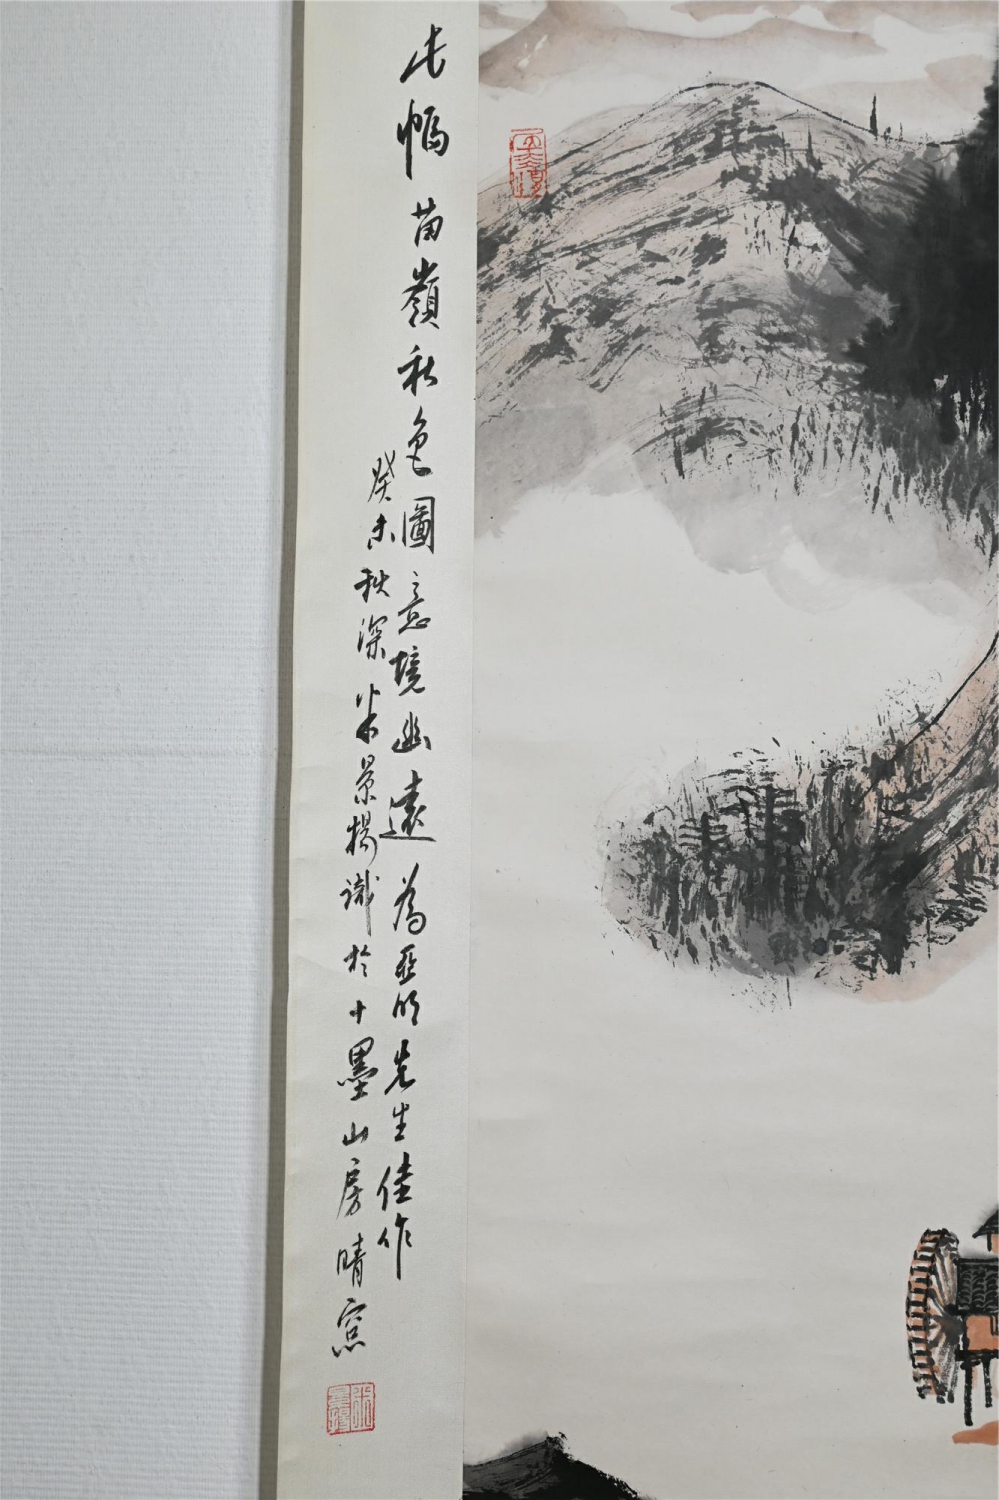 此幅苗嶺秋色圖意境幽遠為亚明先生佳作
癸未秋深米景揚識於十墨山房晴窓
米景揚